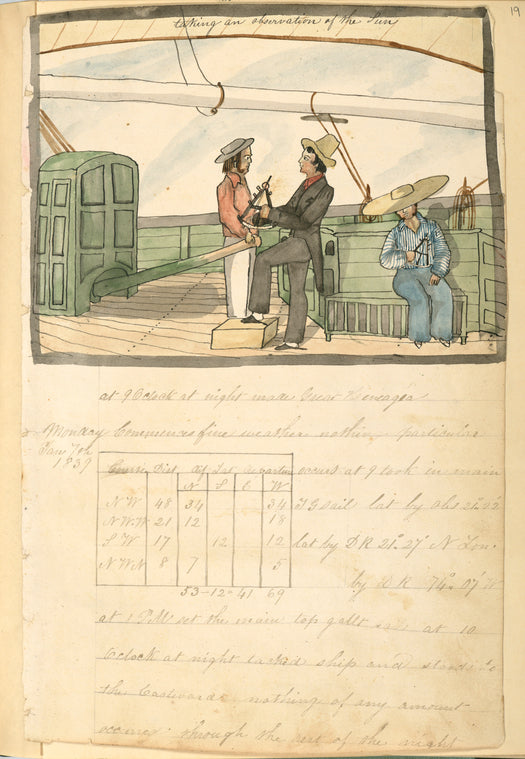 19
taking an observation of the Sun
at 9 Oclock at night made Great Heneagea
Monday Commences fine weather nothing particular
Jany 7th
1839
Course Dist Df Lat Departure occurs at 9 took in main
N S E W
NW 48 34 34 T G sail lat by obs 21°.02
NW.W 21 12 18
SW 17 12 12 lat by D R 21°.27' N Lon.
NWN 8 7 5 by D R 74°.07' W
53-12=41 69
at 1 P.M set the main top gallt sail at 10
Oclock at night tacked ship and stood to
the Eastward nothing of any amount
occurs through the rest of the night